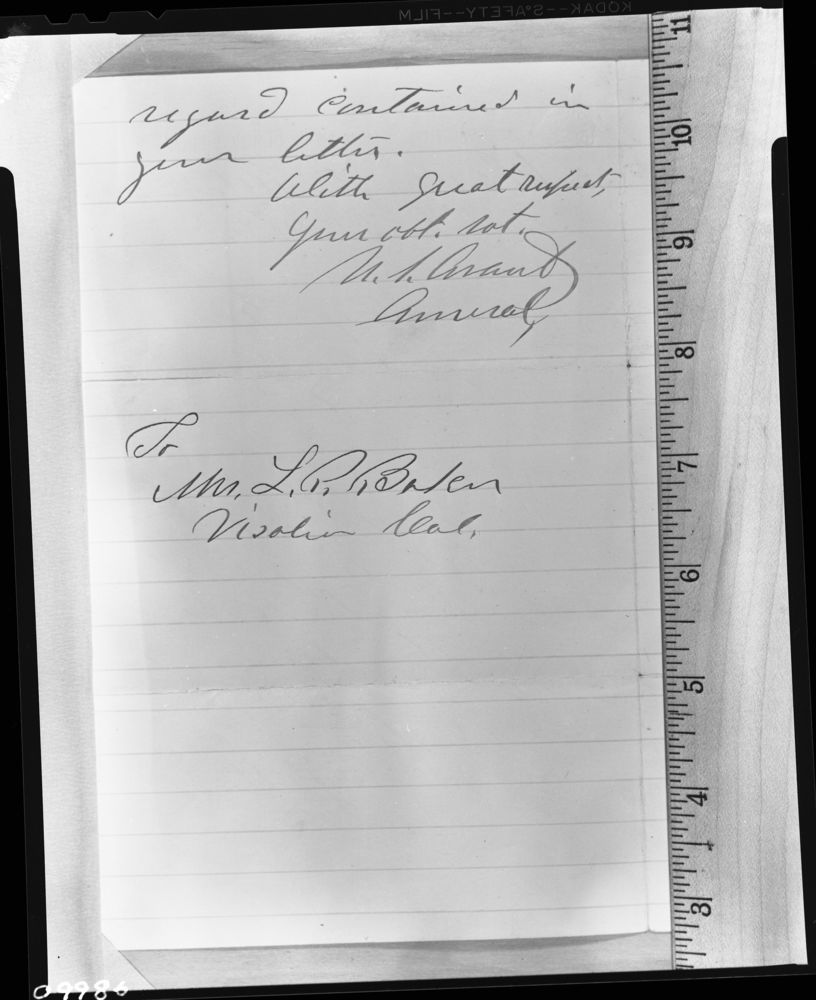 KODAK--SAFETY--FILM
regard contained in
your letter.
With great respect,
your obt. svt.
U. S. Grant
General,
To
Mrs. L. P. Baker
Visalia Cal.
11
10
9
8
7
6
5
4
3
09986